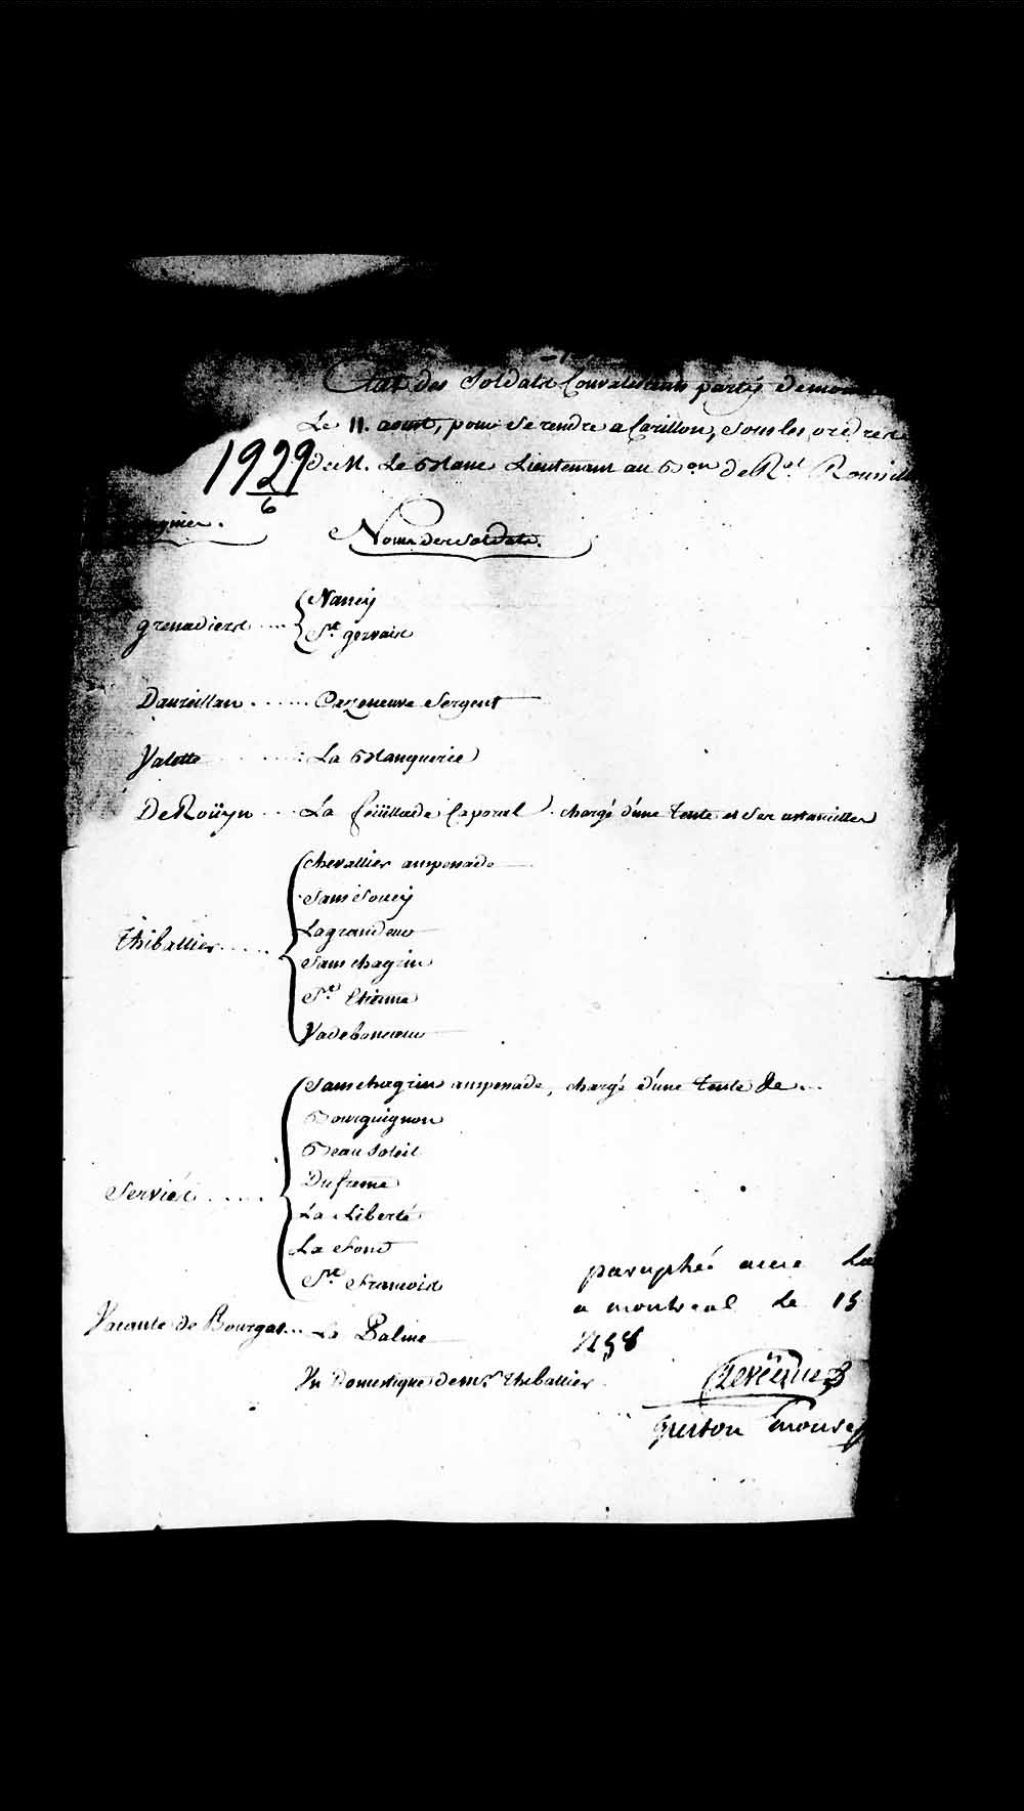 Etat des Soldats Convalescens partis de
Le 11. aoust, pour se rendre a Carillon, sous les ordres
de M. Le Blanc Lieutenant au B.on de R.al
1929
6
Noms des soldats.
grenadiers .... Nancy
St gervais
Daureillan ...... Cazeneuve Sergent
Valette ...... La Blanquerie
De Roüyn ... La feüillade Caporal . chargé d'une tente et
Thiballier ..... chevallier anspesade
Sans Soucy
Lagrandeur
Sans chagrin
St Etienne
Vadeboncoeur
Serviés ..... Sans chagrin anspesade, chargé d'une tente &c ...
Bourguignon
Beau Soleil
Dufresne
La Liberté
La Font
St Francois
Vacante de Bourgat... La Palme
Un Domestique de mr. Thiballier
paraphée
a montreal le 15
1758